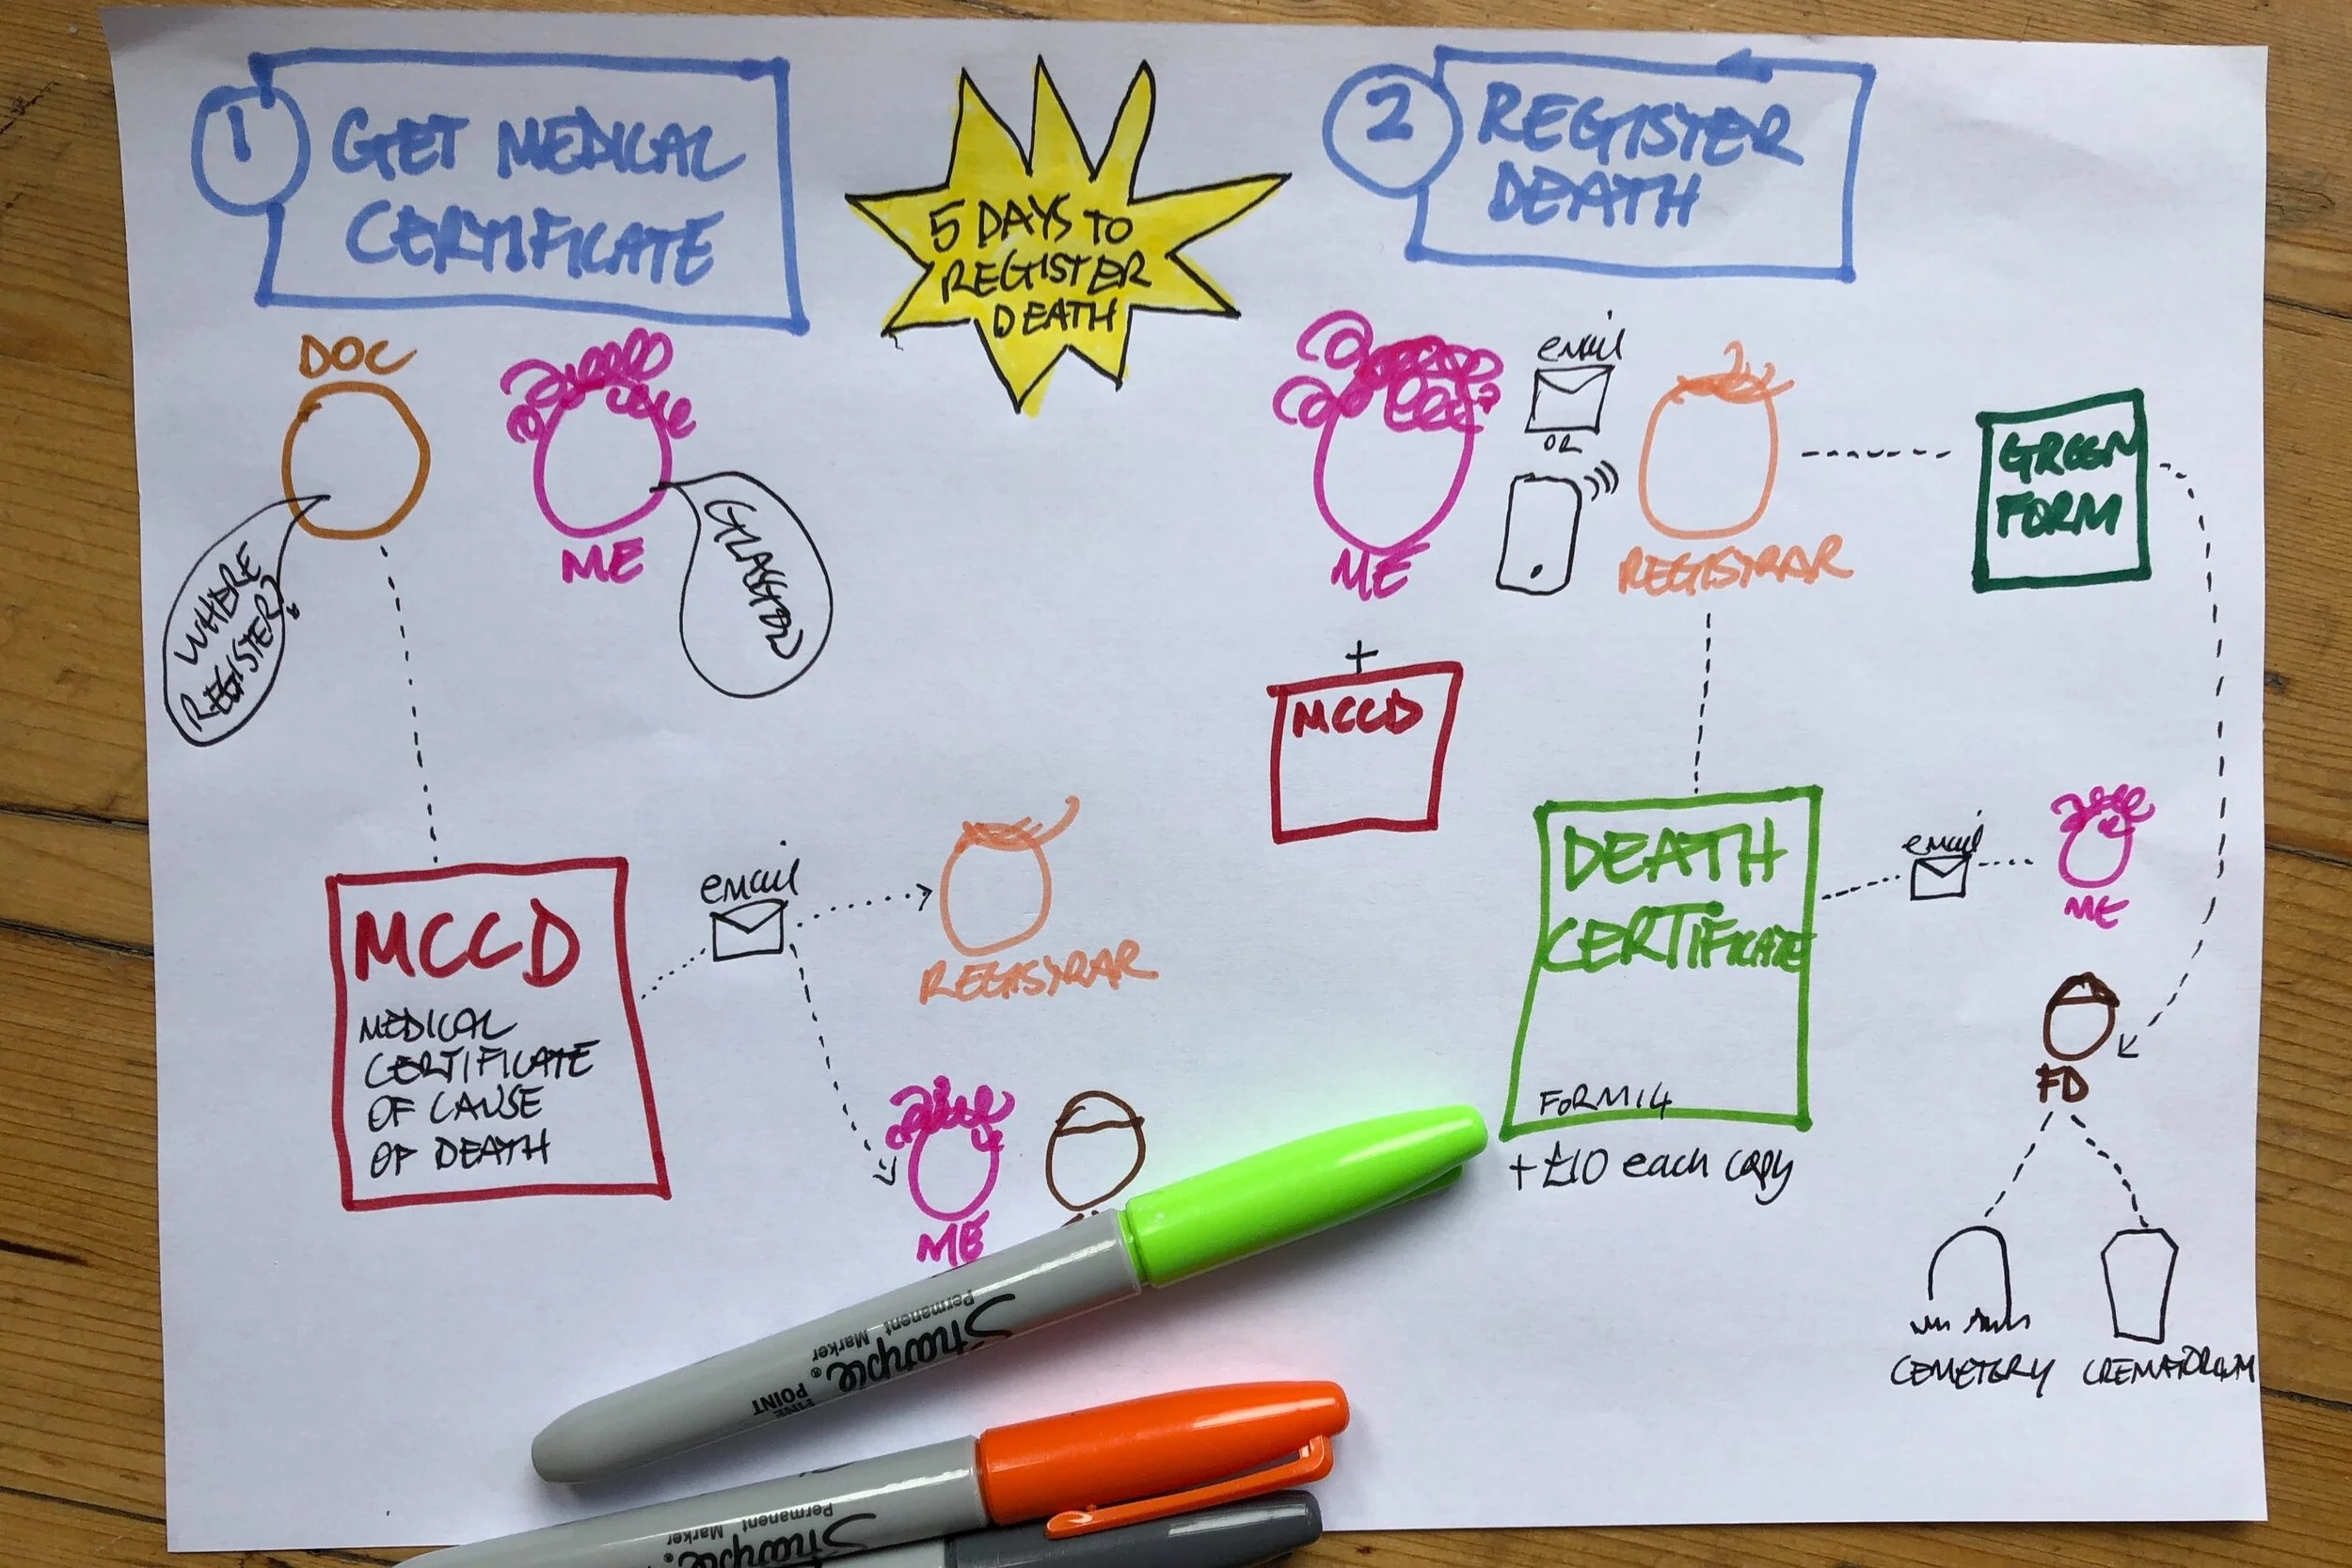 1 GET MEDICAL
CERTIFICATE
5 DAYS TO
REGISTER
DEATH
2 REGISTER
DEATH
DOC
WHERE
REGISTER?
ME
MCCD
MEDICAL
CERTIFICATE
OF CAUSE
OF DEATH
email
REGISTRAR
ME
ME
email
OR
REGISTRAR
GREEN
FORM
+
MCCD
DEATH
CERTIFICATE
FORM14
+ £10 each copy
email
ME
FD
CEMETERY
CREMATORIUM
Sharpie®
FINE
POINT
Permanent
Marker
Sharpie®
Permanent
Marker